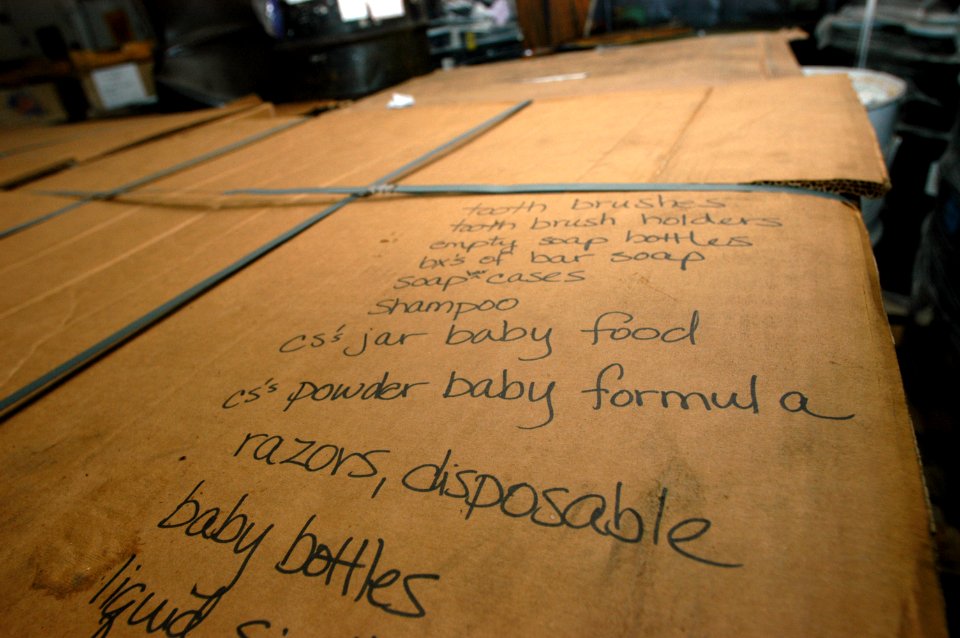 tooth brushes
tooth brush holders
empty soap bottles
bx's of bar soap
soap bar cases
shampoo
cs's jar baby food
cs's powder baby formula
razors, disposable
baby bottles
liquid